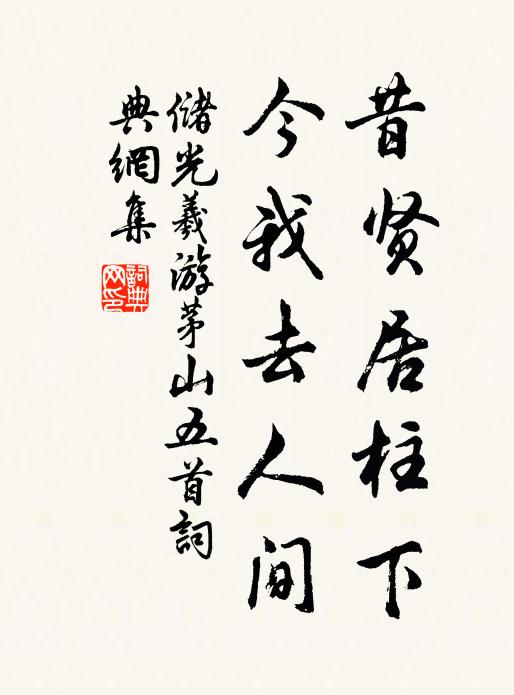 昔贤居柱下
今我去人间
储光羲游茅山五首詞
典網集
詞典
网印